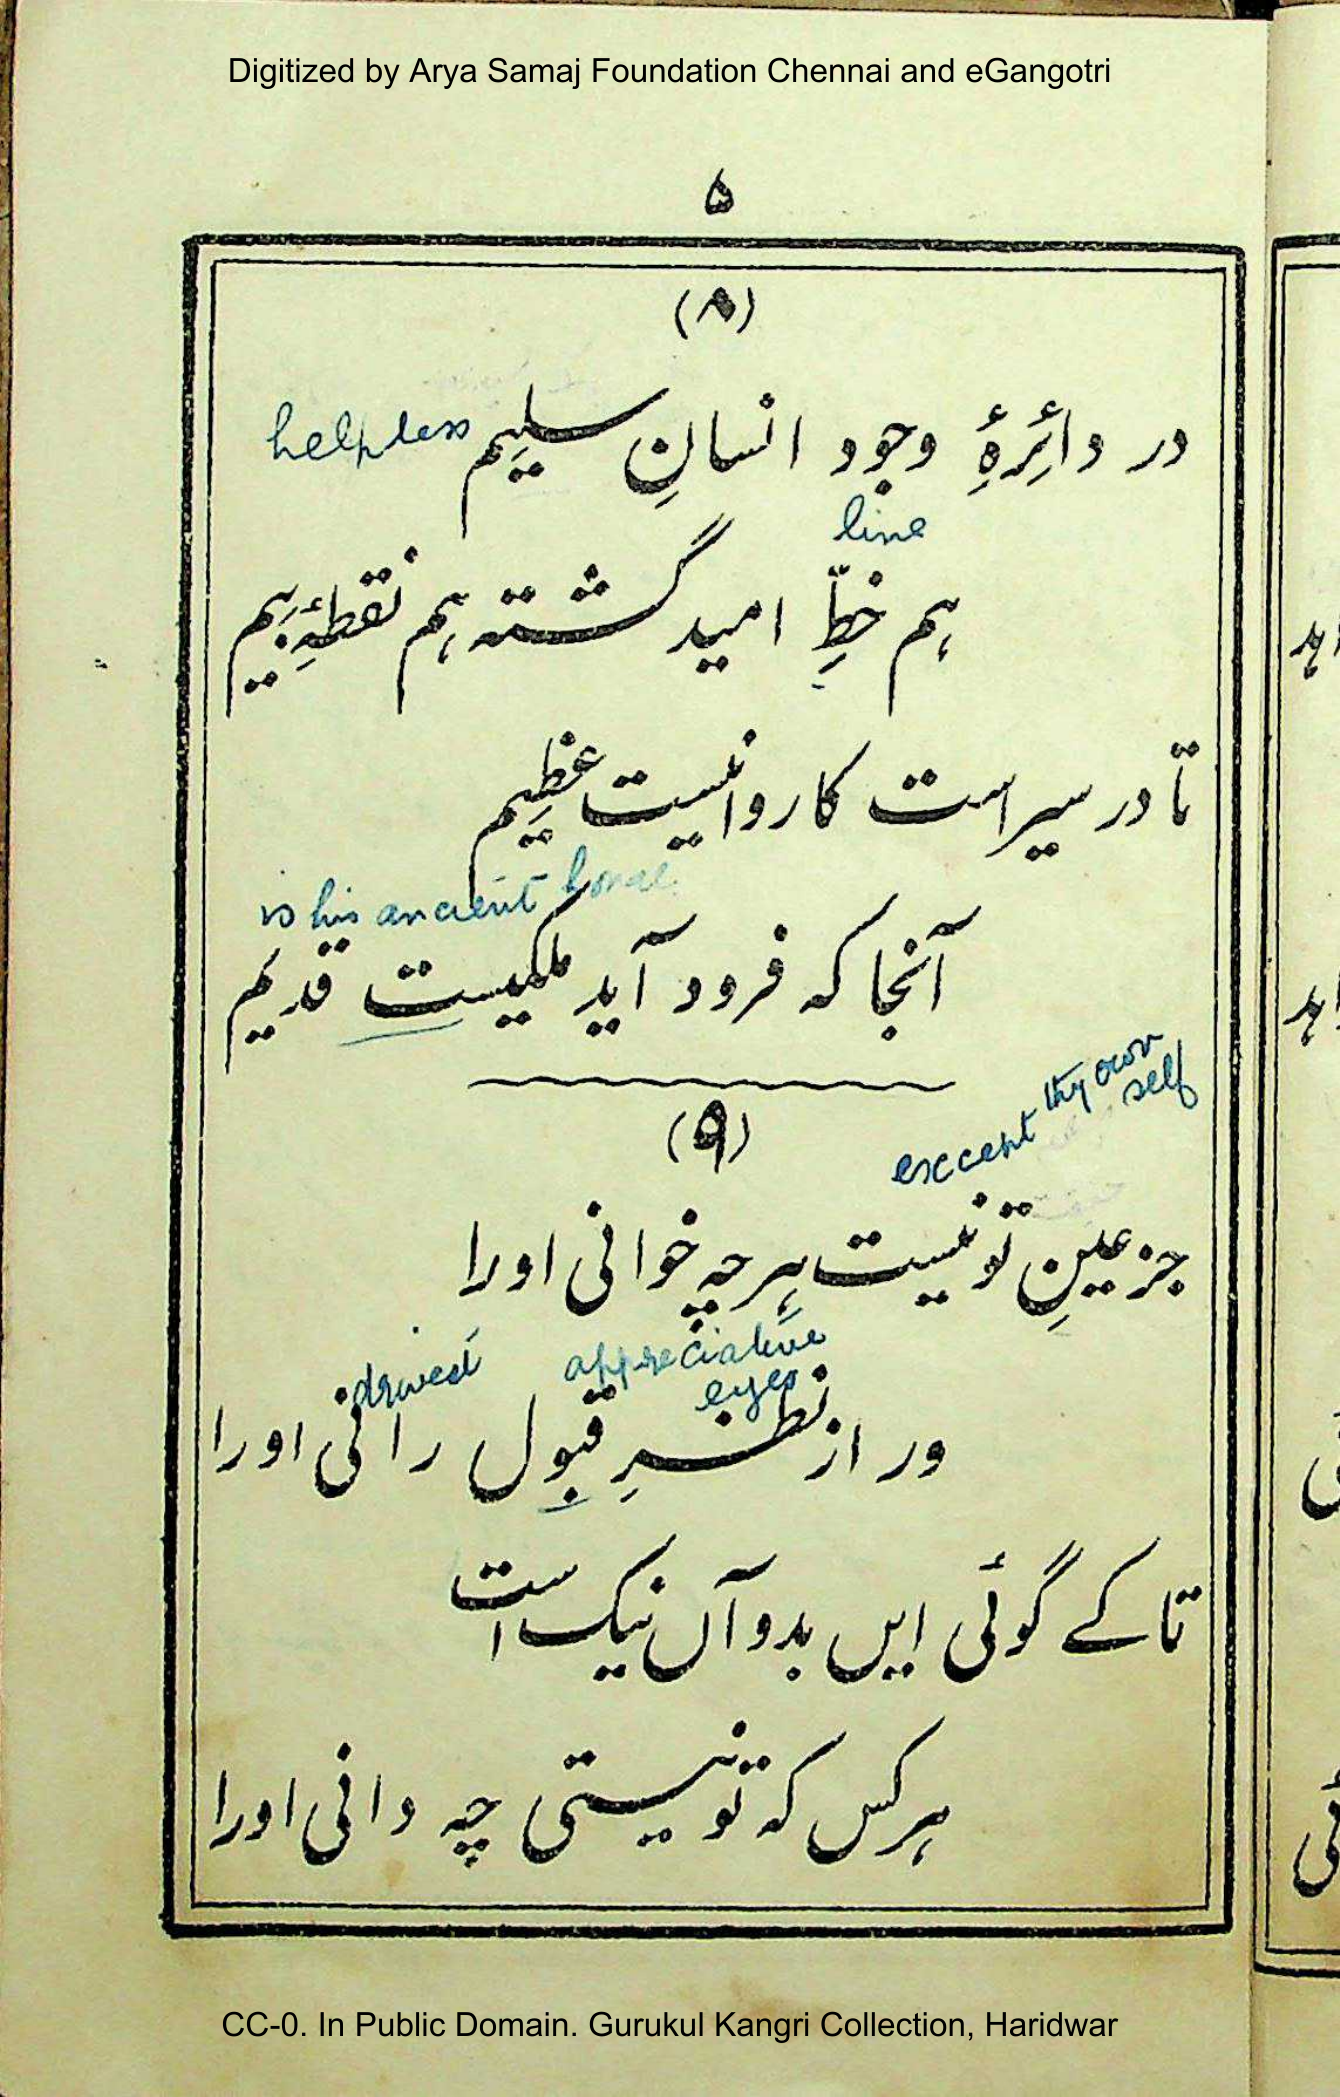 Digitized by Arya Samaj Foundation Chennai and eGangotri
۵
(۸)
در دائِرۂِ وجود انسانِ سلیِم helpless
line
ہم خطِّ امید گشتہ ہم نقطۂِ بیم
تا در سیر است کاروانیست عظِیم
is his ancient home
آنجا کہ فرود آید ملکیست قدیم
except thy own self
(۹)
جز عینِ تو نیست ہرچہ خوانی اورا
appreciative eyes
ور از نظرِ قبول رانی اورا
تا کے گوئی ایں بد و آں نیک است
ہر کس کہ تو نیستی چہ دانی اورا
CC-0. In Public Domain. Gurukul Kangri Collection, Haridwar